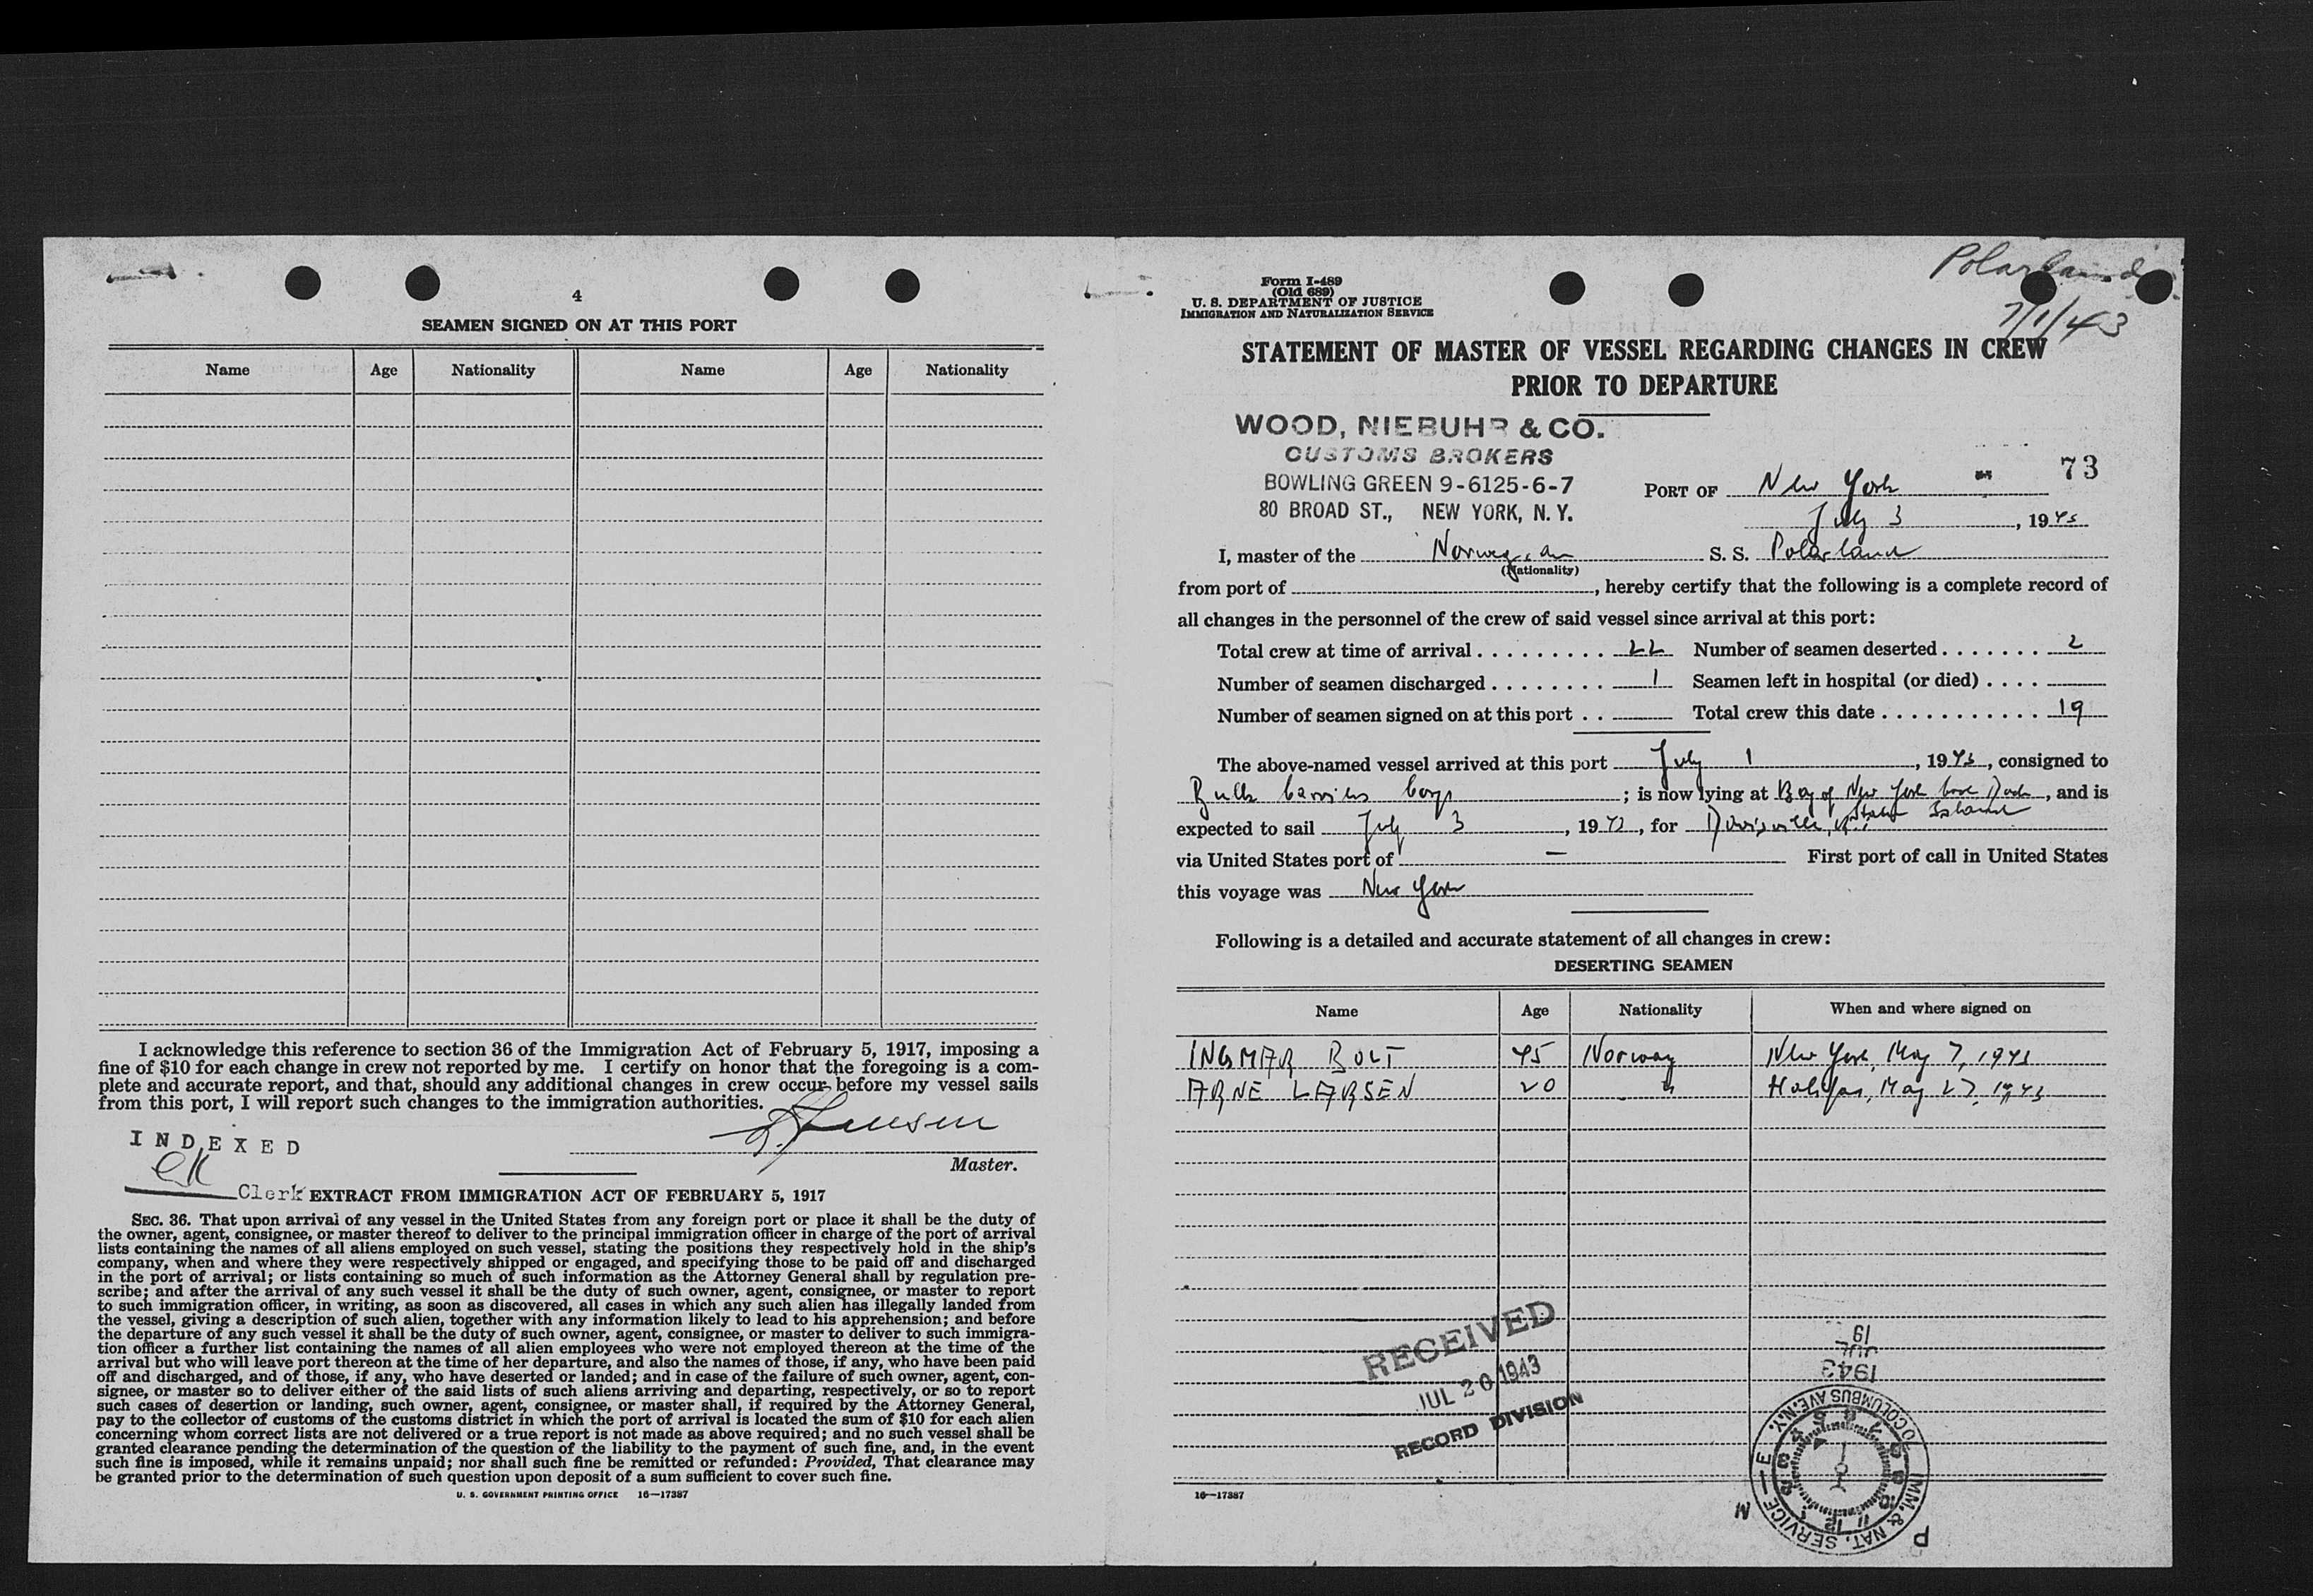 4
SEAMEN SIGNED ON AT THIS PORT
Name Age Nationality Name Age Nationality
I acknowledge this reference to section 36 of the Immigration Act of February 5, 1917, imposing a
fine of $10 for each change in crew not reported by me. I certify on honor that the foregoing is a com-
plete and accurate report, and that, should any additional changes in crew occur before my vessel sails
from this port, I will report such changes to the immigration authorities.
INDEXED
Master.
Clerk
EXTRACT FROM IMMIGRATION ACT OF FEBRUARY 5, 1917
SEC. 36. That upon arrival of any vessel in the United States from any foreign port or place it shall be the duty of
the owner, agent, consignee, or master thereof to deliver to the principal immigration officer in charge of the port of arrival
lists containing the names of all aliens employed on such vessel, stating the positions they respectively hold in the ship's
company, when and where they were respectively shipped or engaged, and specifying those to be paid off and discharged
in the port of arrival; or lists containing so much of such information as the Attorney General shall by regulation pre-
scribe; and after the arrival of any such vessel it shall be the duty of such owner, agent, consignee, or master to report
to such immigration officer, in writing, as soon as discovered, all cases in which any such alien has illegally landed from
the vessel, giving a description of such alien, together with any information likely to lead to his apprehension; and before
the departure of any such vessel it shall be the duty of such owner, agent, consignee, or master to deliver to such immigra-
tion officer a further list containing the names of all alien employees who were not employed thereon at the time of the
arrival but who will leave port thereon at the time of her departure, and also the names of those, if any, who have been paid
off and discharged, and of those, if any, who have deserted or landed; and in case of the failure of such owner, agent, con-
signee, or master so to deliver either of the said lists of such aliens arriving and departing, respectively, or so to report
such cases of desertion or landing, such owner, agent, consignee, or master shall, if required by the Attorney General,
pay to the collector of customs of the customs district in which the port of arrival is located the sum of $10 for each alien
concerning whom correct lists are not delivered or a true report is not made as above required; and no such vessel shall be
granted clearance pending the determination of the question of the liability to the payment of such fine, and, in the event
such fine is imposed, while it remains unpaid; nor shall such fine be remitted or refunded: Provided, That clearance may
be granted prior to the determination of such question upon deposit of a sum sufficient to cover such fine.
U. S. GOVERNMENT PRINTING OFFICE 16—17387
Polarland
7/1/43
Form I-489
(Old 689)
U. S. DEPARTMENT OF JUSTICE
IMMIGRATION AND NATURALIZATION SERVICE
STATEMENT OF MASTER OF VESSEL REGARDING CHANGES IN CREW
PRIOR TO DEPARTURE
WOOD, NIEBUHR & CO.
CUSTOMS BROKERS
BOWLING GREEN 9-6125-6-7
80 BROAD ST., NEW YORK, N. Y.
73
PORT OF New York
July 3, 1943
I, master of the Norwegian S. S. Polarland
(Nationality)
from port of , hereby certify that the following is a complete record of
all changes in the personnel of the crew of said vessel since arrival at this port:
Total crew at time of arrival 22 Number of seamen deserted 2
Number of seamen discharged 1 Seamen left in hospital (or died)
Number of seamen signed on at this port Total crew this date 19
The above-named vessel arrived at this port July 1, 1943, consigned to
Bulk Carriers Corp; is now lying at Bay of New York , and is
expected to sail July 3, 1943, for Davisville,
via United States port of — First port of call in United States
this voyage was New York
Following is a detailed and accurate statement of all changes in crew:
DESERTING SEAMEN
Name Age Nationality When and where signed on
INGMAR BOLT 45 Norway New York, May 7, 1943
ARNE LARSEN 20 " Halifax, May 27, 1943
RECEIVED
JUL 20 1943
RECORD DIVISION
1943
JUL
19
70 COLUMBUS AVE. N.Y.
IMM. & NAT. SERVICE
16—17387